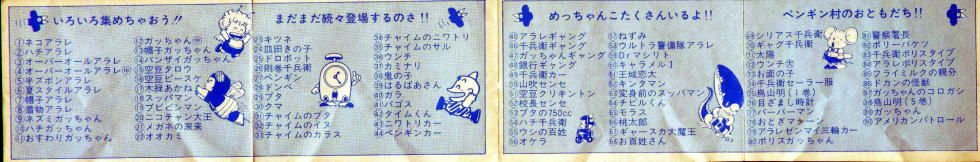 いろいろ集めちゃおう!!
①ネコアラレ
②ハチアラレ
③オーバーオールアラレ
④オーバーオールアラレ㊥
⑤キスボンアラレ
⑥夏スタイルアラレ
⑦帽子アラレ
⑧着物アラレ
⑨ネズミガッちゃん
⑩ハチガッちゃん
⑪おすわりガッちゃん
⑫ガッちゃん㊥
⑬帽子ガッちゃん
⑭バンザイガッちゃん
⑮空豆タロウ
⑯空豆ピースケ
⑰木緑あかね
⑱スッパマン
⑲ブビビンマン
⑳ニコチャン大王
㉑メガネの家来
㉒オオカミ
まだまだ続々登場するのさ!!
㉓キツネ
㉔皿田きの子
㉕ドロボット
㉖則巻千兵衛
㉗ペンギン
㉘ドンベ
㉙ブタ
㉚クマ
㉛チャイムのブタ
㉜チャイムのイヌ
㉝チャイムのカラス
㉞チャイムのニワトリ
㉟チャイムのサル
㊱ウンチ
㊲カミナリ
㊳鬼の子
㊴はるばあさん
㊵ガラ
㊶パゴス
㊷タイムくん
㊸ニワトリカー
㊹ペンギンカー
めっちゃんこたくさんいるよ!!
㊺アラレギャング
㊻千兵衛ギャング
㊼ガッちゃんギャング
㊽銀行ギャング
㊾千兵衛カー
㊿山吹センセ
51空豆クリキントン
52校長センセ
53ブタの750cc
54ハチ千兵衛
55ウシの百姓
56オケラ
57ねずみ
58ウルトラ警備隊アラレ
59Drマシリト
60キャラメル1
61玉城恋太
62キンタマン
63変身前のスッパマン
64チビルくん
65モラス
66桃太郎
67ギャースカ大魔王
68お百姓さん
ペンギン村のおともだち!!
69シリアス千兵衛
70ギャグ千兵衛
71太陽
72ウンチ
73お面の子
74千兵衛セーラー服
75鳥山明(1巻)
76目ざまし時計
77バーバーマン
78おとぎマシーン
79アラレゼンマイ三輪カー
80ポリスガッちゃん
81警察署長
82ポリーバケツ
83千兵衛ポリスタイプ
84アラレポリスタイプ
85クライミルクの親分
86ドカンの怪獣
87ガッちゃんのコロガシ
88鳥山明(5巻)
89ガッちゃん
90アメリカンパトロール